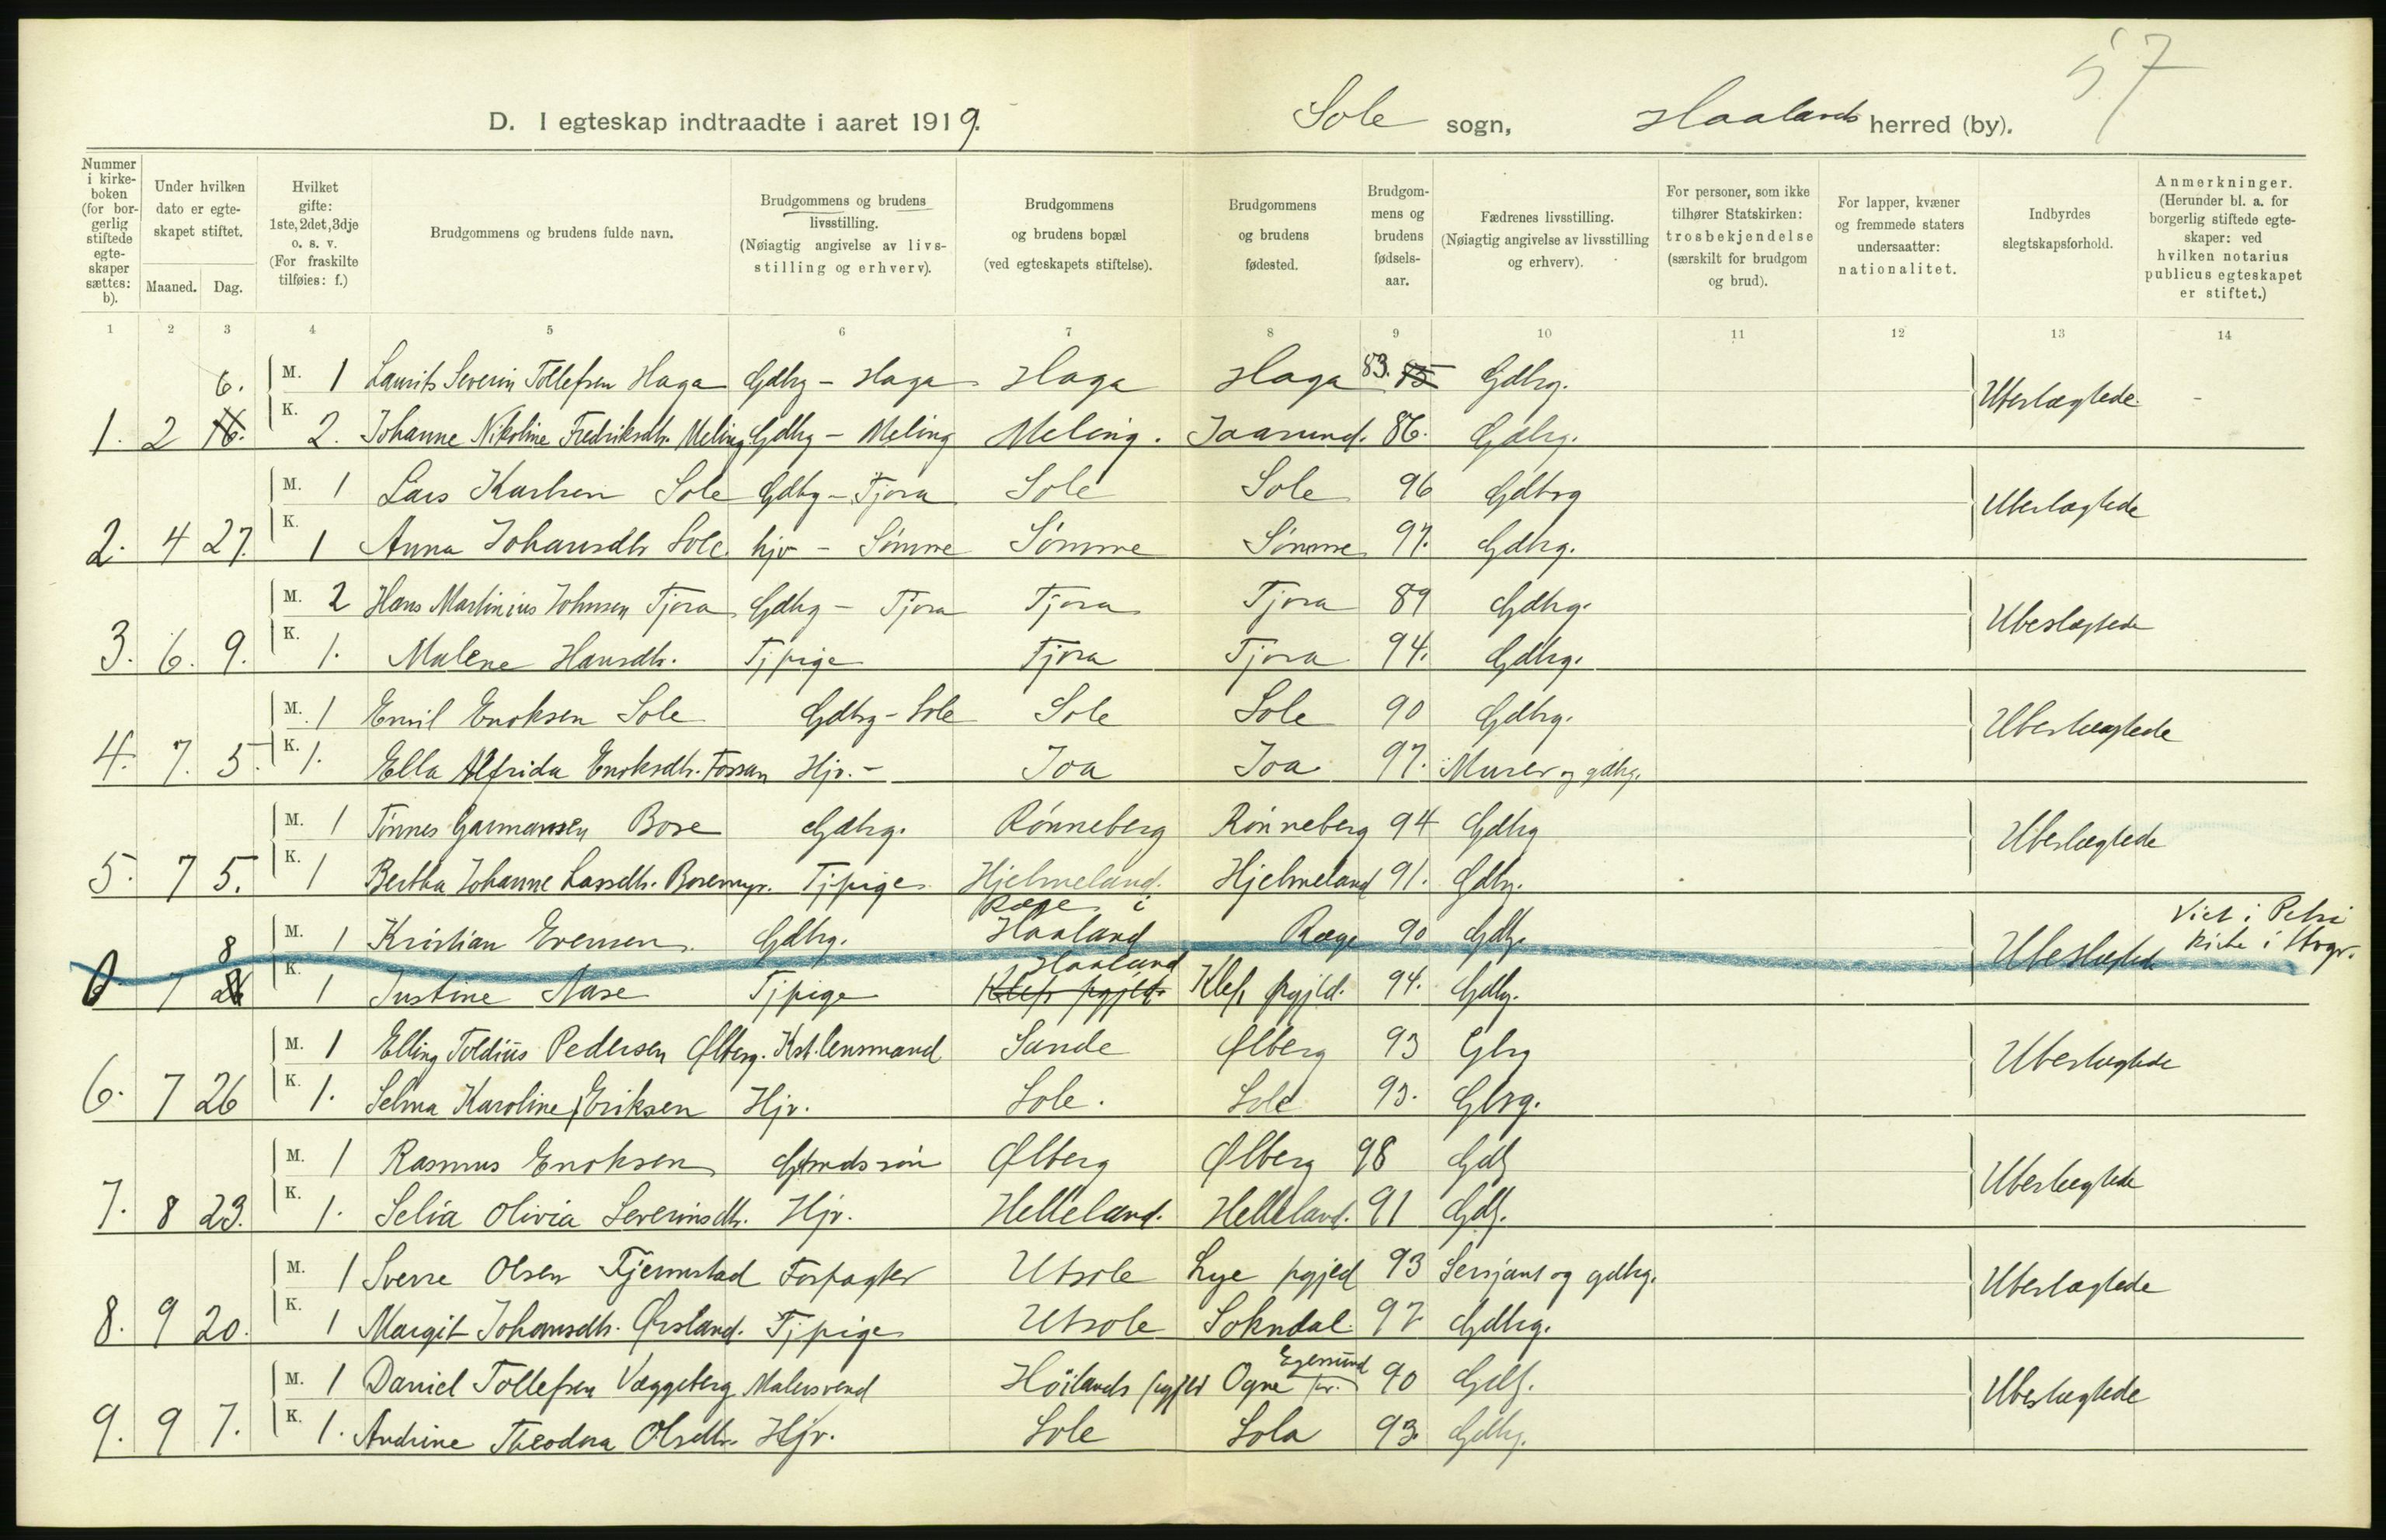 57
D. I egteskap indtraadte i aaret 1919. Sole sogn, Haalands herred (by).
Nummer i kirkeboken (for borgerlig stiftede egteskaper sættes: b).
Under hvilken dato er egteskapet stiftet.
Maaned. Dag.
Hvilket gifte: 1ste, 2det, 3dje o. s. v. (For fraskilte tilføies: f.)
Brudgommens og brudens fulde navn.
Brudgommens og brudens livsstilling. (Nøiagtig angivelse av livsstilling og erhverv).
Brudgommens og brudens bopæl (ved egteskapets stiftelse).
Brudgommens og brudens fødested.
Brudgommens og brudens fødselsaar.
Fædrenes livsstilling. (Nøiagtig angivelse av livsstilling og erhverv).
For personer, som ikke tilhører Statskirken: trosbekjendelse (særskilt for brudgom og brud).
For lapper, kvæner og fremmede staters undersaatter: nationalitet.
Indbyrdes slegtskapsforhold.
Anmerkninger. (Herunder bl. a. for borgerlig stiftede egteskaper: ved hvilken notarius publicus egteskapet er stiftet.)
1 2 3 4 5 6 7 8 9 10 11 12 13 14
6. M. 1 Laurits Severin Tollefsen Haga Gdbrg - Haga Haga Haga 83. 85 Gdbrg. Ubeslægtede -
1. 2 16. K. 2. Johanne Nikoline Fredriksdtr. Meling Gdbrg - Meling Meling. Joasund. 86. Gdbrg.
M. 1 Lars Karlsen Sole Gdbrg - Tjora Sole Sole 96 Gdbrg Ubeslægtede
2. 4 27. K. 1 Anna Johansdtr Sole hjv - Sømme Sømme Sømme 97. Gdbrg.
M. 2 Hans Martinius Johnsen Tjora Gdbrg - Tjora Tjora Tjora 89 Gdbrg. Ubeslægtede
3. 6. 9. K. 1. Malene Hansdtr. Tjpige Tjora Tjora 94. Gdbrg.
M. 1 Emil Enoksen Sole Gdbrg - Sole Sole Sole 90 Gdbrg. Ubeslægtede
4. 7. 5. K. 1. Ella Alfrida Enoksdtr. Fossan Hjv. - Joa Joa 97. Murer og gdbrg.
M. 1 Tønnes Garmansen Bore Gdbrg. Rønneberg Rønneberg 94 Gdbrg Ubeslægtede
5. 7 5. K. 1 Bertha Johanne Lassedtr. Boremyr. Tjpige Hjelmeland. Hjelmeland 91. Gdbr.
Ræge i
8 M. 1 Kristian Evensen. Gdbrg. Haaland Ræge 90 Gdbr. Ubeslægtede Viet i Petri kirke i Stvgr.
7 26 K. 1 Justine Aase Tjpige Haaland Klep pgjld. Klep pgjld. 94. Gdbr.
M. 1 Elling Toldiüs Pedersen Ølberg. Kst. lensmand Sande Ølberg 93 Gbrg Ubeslægtede
6. 7 26 K. 1. Selma Karoline Eriksen Hjv. Sole. Sole 93. Gbrg.
M. 1 Rasmus Enoksen Gaardssøn Ølberg Ølberg 98 Gdb Ubeslægtede
7. 8 23. K. 1. Selia Olivia Severinsdtr. Hjv. Helleland. Helleland. 91 Gdb.
M. 1 Sverre Olsen Tjemsland Forpagter Utsole Lye pgjeld 93 Sersjant og gdbrg. Ubeslægtede
8. 9 20. K. 1 Margit Johansdtr. Ørsland. Tjpige Utsole Sokndal. 97 Gdbrg.
M. 1 Daniel Tollefsen Væggeberg Malersvend Höilands pgjld Ogne Egersund pr. 90 Gdb. Ubeslægtede
9. 9 7. K. 1. Andrine Theodora Olsdtr. Hjv. Sole Sola 93. Gdbrg.